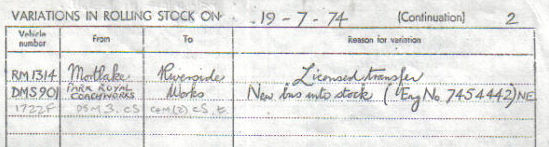 VARIATIONS IN ROLLING STOCK ON 19 - 7 - 74 (Continuation) 2
Vehicle number From To Reason for variation
RM1314 Mortlake Riverside Licensed transfer
DMS901 PARK ROYAL COACHWORKS Works New bus into stock (Eng No 7454442) NE
1722F DSM 3. CS CS